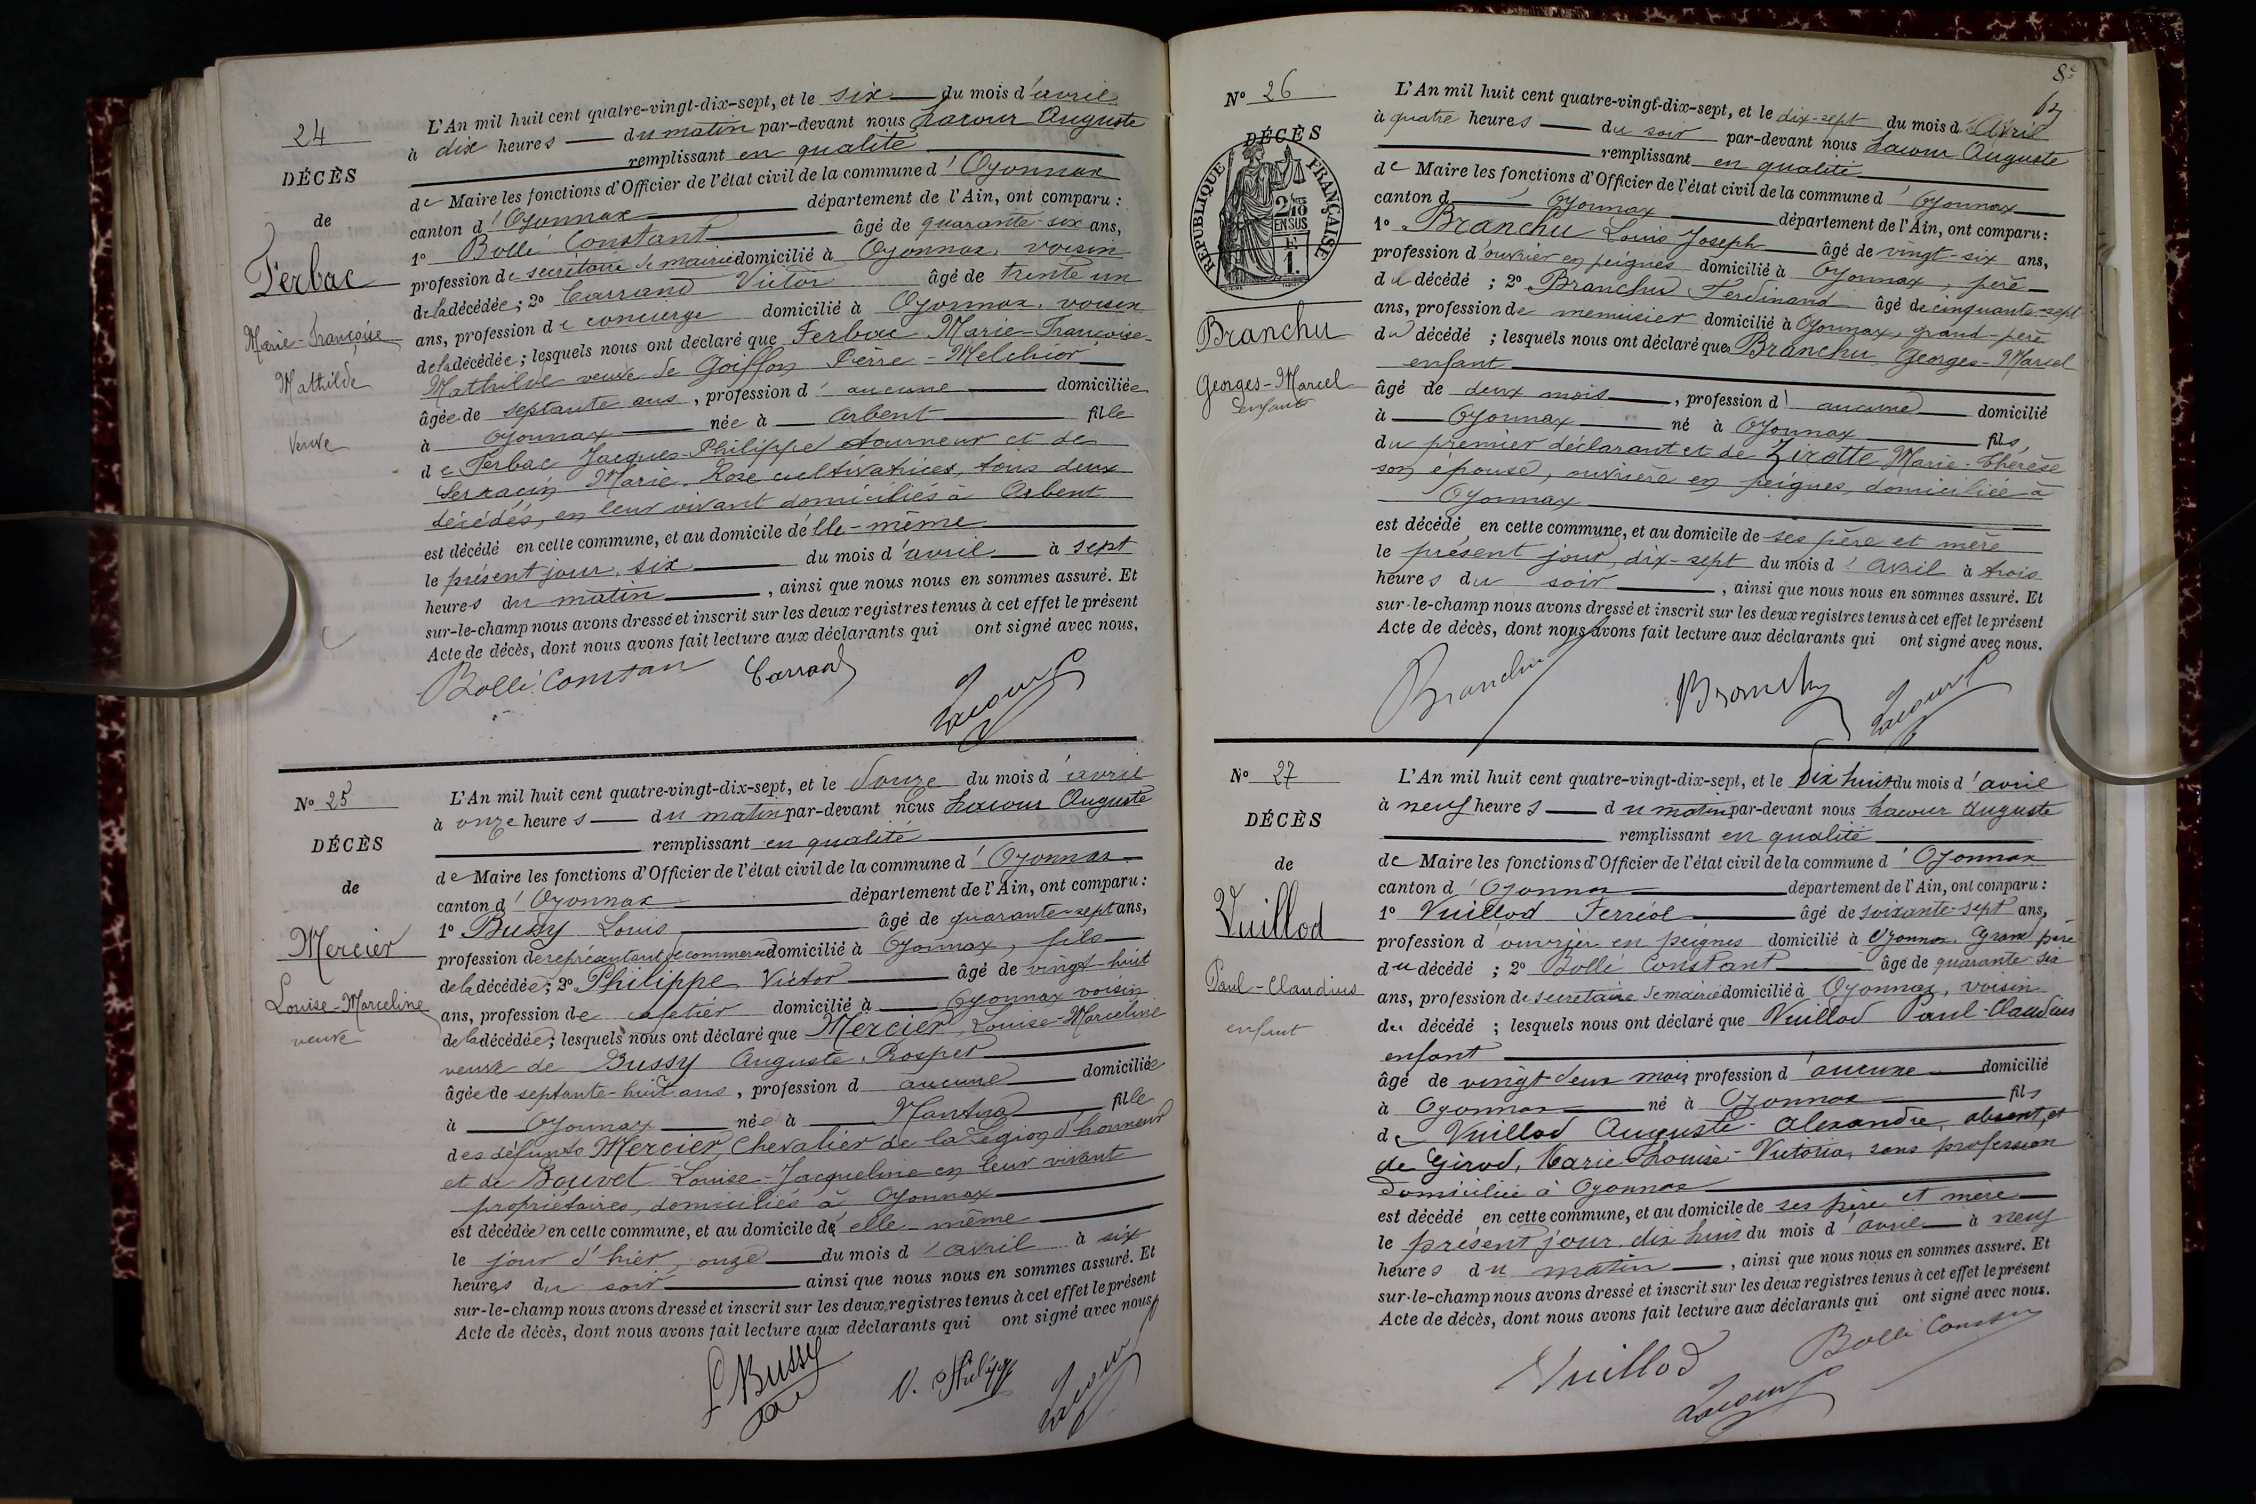 24
DÉCÈS
de
Ferbac
Marie-Françoise
Mathilde
Veuve
L'An mil huit cent quatre-vingt-dix-sept, et le six du mois d'avril
à dix heures du matin par-devant nous Lacour Auguste
remplissant en qualité
de Maire les fonctions d'Officier de l'état civil de la commune d'Oyonnax
canton d'Oyonnax département de l'Ain, ont comparu :
1° Bollé Constant âgé de quarante-six ans,
profession de secrétaire de mairie domicilié à Oyonnax, voisin
de la décédée ; 2° Carrand Victor âgé de trente un
ans, profession de concierge domicilié à Oyonnax, voisin
de la décédée ; lesquels nous ont déclaré que Ferbac Marie-Françoise-
Mathilde veuve de Goiffon Pierre-Melchior
âgée de septante ans, profession d'aucune domiciliée
à Oyonnax née à Arbent fille
de Ferbac Jacques-Philippe tourneur et de
Serracin Marie-Rose cultivatrice, tous deux
décédés, en leur vivant domiciliés à Arbent
est décédé en cette commune, et au domicile d'elle-même
le présent jour, six du mois d'avril à sept
heures du matin, ainsi que nous nous en sommes assuré. Et
sur-le-champ nous avons dressé et inscrit sur les deux registres tenus à cet effet le présent
Acte de décès, dont nous avons fait lecture aux déclarants qui ont signé avec nous.
Bollé Constan Carrand Lacour
N° 25
DÉCÈS
de
Mercier
Louise-Marceline
veuve
L'An mil huit cent quatre-vingt-dix-sept, et le douze du mois d'avril
à onze heures du matin par-devant nous Lacour Auguste
remplissant en qualité
de Maire les fonctions d'Officier de l'état civil de la commune d'Oyonnax
canton d'Oyonnax département de l'Ain, ont comparu :
1° Bussy Louis âgé de quarante-sept ans,
profession de représentant de commerce domicilié à Oyonnax, fils
de la décédée ; 2° Philippe Victor âgé de vingt-huit
ans, profession de cafetier domicilié à Oyonnax voisin
de la décédée ; lesquels nous ont déclaré que Mercier Louise-Marceline
veuve de Bussy Auguste Prosper
âgée de septante-huit ans, profession d aucune domiciliée
à Oyonnax née à Nantua fille
des défunts Mercier, Chevalier de la Légion d'honneur
et de Bouvet Louise-Jacqueline en leur vivant
propriétaires, domiciliés à Oyonnax
est décédée en cette commune, et au domicile d'elle-même
le jour d'hier, onze du mois d'avril à six
heures du soir ainsi que nous nous en sommes assuré. Et
sur-le-champ nous avons dressé et inscrit sur les deux registres tenus à cet effet le présent
Acte de décès, dont nous avons fait lecture aux déclarants qui ont signé avec nous
L Bussy V. Philippe Lacour
8e
N° 26
DÉCÈS
RÉPUBLIQUE FRANÇAISE
2/10 EN SUS
1.
Branchu
Georges-Marcel
enfant
L'An mil huit cent quatre-vingt-dix-sept, et le dix-sept du mois d'Avril
à quatre heures du soir par-devant nous Lacour Auguste
remplissant en qualité
de Maire les fonctions d'Officier de l'état civil de la commune d'Oyonnax
canton d'Oyonnax département de l'Ain, ont comparu :
1° Branchu Louis Joseph âgé de vingt-six ans,
profession d'ouvrier en peignes domicilié à Oyonnax, père
du décédé ; 2° Branchu Ferdinand âgé de cinquante-sept
ans, profession de menuisier domicilié à Oyonnax, grand-père
du décédé ; lesquels nous ont déclaré que Branchu Georges-Marcel
enfant
âgé de deux mois, profession d'aucune domicilié
à Oyonnax né à Oyonnax fils
du premier déclarant et de Zirotte Marie-Thérèse
son épouse, ouvrière en peignes, domiciliée à
Oyonnax
est décédé en cette commune, et au domicile de ses père et mère
le présent jour, dix-sept du mois d'avril à trois
heures du soir, ainsi que nous nous en sommes assuré. Et
sur-le-champ nous avons dressé et inscrit sur les deux registres tenus à cet effet le présent
Acte de décès, dont nous avons fait lecture aux déclarants qui ont signé avec nous.
Branchu Branchu Lacour
N° 27
DÉCÈS
de
Vuillod
Paul-Claudius
enfant
L'An mil huit cent quatre-vingt-dix-sept, et le Dix huit du mois d'avril
à neuf heures du matin par-devant nous Lacour Auguste
remplissant en qualité
de Maire les fonctions d'Officier de l'état civil de la commune d'Oyonnax
canton d'Oyonnax département de l'Ain, ont comparu :
1° Vuillod Ferréol âgé de soixante-sept ans,
profession d'ouvrier en peignes domicilié à Oyonnax, Grand père
du décédé ; 2° Bollé Constant âgé de quarante-six
ans, profession de secrétaire de mairie domicilié à Oyonnax, voisin
du décédé ; lesquels nous ont déclaré que Vuillod Paul-Claudius
enfant
âgé de vingt deux mois profession d'aucune domicilié
à Oyonnax né à Oyonnax fils
de Vuillod Auguste-Alexandre, absent, et
de Girod, Marie Louise-Victoria, sans profession
domiciliée à Oyonnax
est décédé en cette commune, et au domicile de ses père et mère
le présent jour dix huit du mois d'avril à neuf
heures du matin, ainsi que nous nous en sommes assuré. Et
sur-le-champ nous avons dressé et inscrit sur les deux registres tenus à cet effet le présent
Acte de décès, dont nous avons fait lecture aux déclarants qui ont signé avec nous.
Vuillod Bollé Constan
Lacour